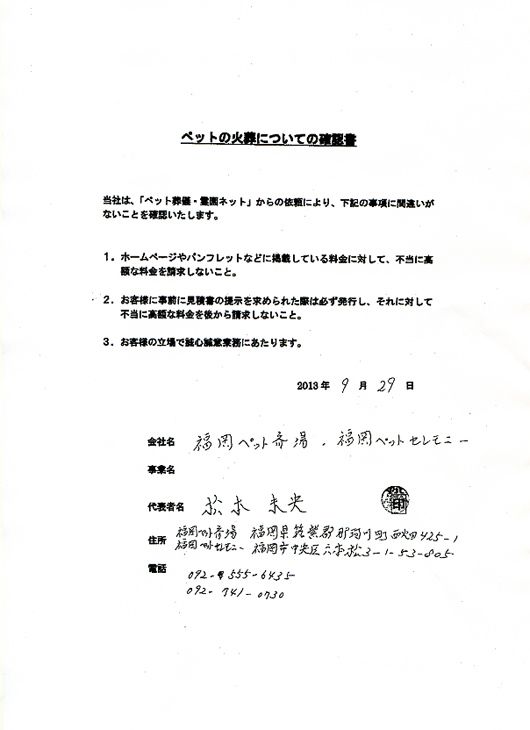 ペットの火葬についての確認書
当社は、「ペット葬儀・霊園ネット」からの依頼により、下記の事項に間違いが
ないことを確認いたします。
1．ホームページやパンフレットなどに掲載している料金に対して、不当に高
額な料金を請求しないこと。
2．お客様に事前に見積書の提示を求められた際は必ず発行し、それに対して
不当に高額な料金を後から請求しないこと。
3．お客様の立場で誠心誠意業務にあたります。
2013年 9 月 29 日
会社名 福岡ペット斎場 . 福岡ペットセレモニー
事業名
代表者名 松本 未央 印
住所 福岡ペット斎場 福岡県筑紫郡那珂川町西畑425-1
福岡ペットセレモニー 福岡市中央区六本松3-1-53-805
電話 092-555-6435
092-741-0730